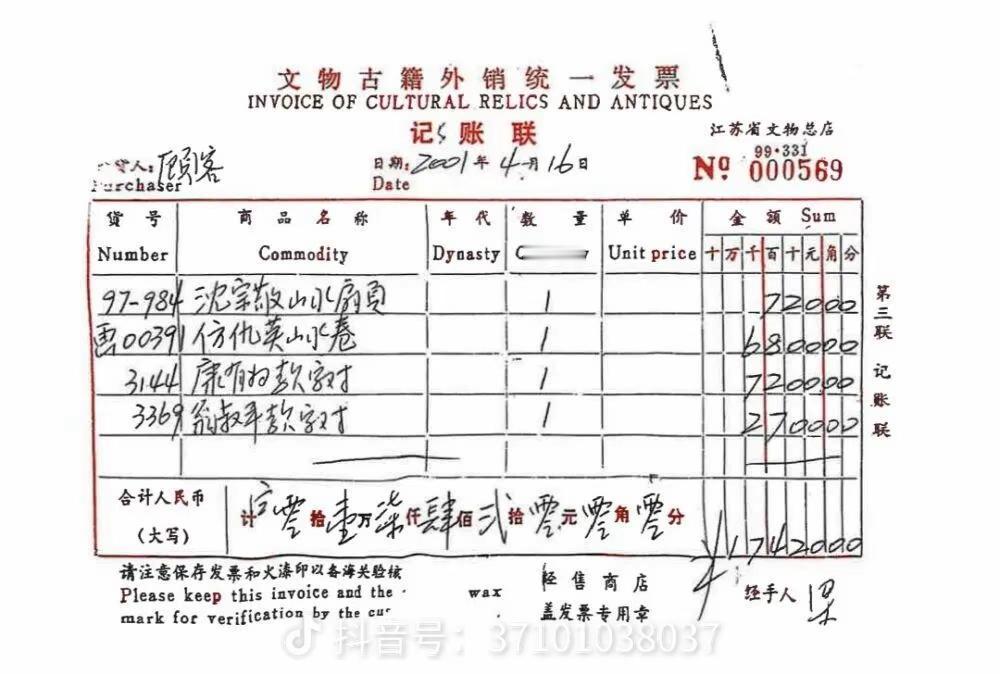 文物古籍外销统一发票
INVOICE OF CULTURAL RELICS AND ANTIQUES
记账联
江苏省文物总店
99·331
Nº 000569
货人: 顾客
Purchaser
日期: 2001年4月16日
Date
货号 商品名称 年代 数量 单价 金额 Sum
Number Commodity Dynasty Unit price 十万千百十元角分
97-984 沈宗敬山水扇页 1 72000
画00391 仿仇英山水卷 1 680000
3144 康有为款字对 1 720000
3369 翁叔平款字对 1 270000
合计人民币
(大写)
计 零拾壹万柒仟肆佰贰拾零元零角零分
¥1742000
请注意保存发票和火漆印以备海关验核
Please keep this invoice and the wax
mark for verification by the cus
经售商店
盖发票专用章
经手人 梁
第三联 记账联
抖音号: 37101038037